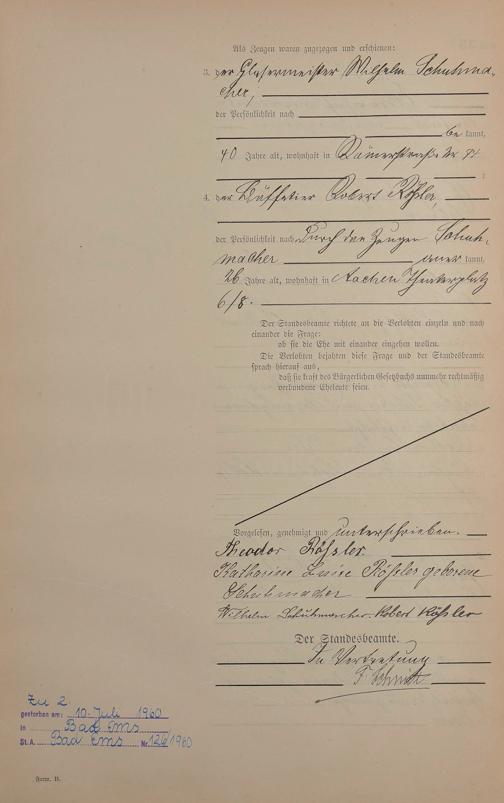 Als Zeugen waren zugezogen und erschienen:
3. der Glasermeister Wilhelm Schuhma-
cher,
der Persönlichkeit nach
be kannt,
40 Jahre alt, wohnhaft in Römerstraße Nr 94
;
4. der Büffetier Robert Rößler,
der Persönlichkeit nach durch den Zeugen Schuh-
macher aner kannt,
26 Jahre alt, wohnhaft in Aachen Theaterplatz
6/8.
Der Standesbeamte richtete an die Verlobten einzeln und nach
einander die Frage:
ob sie die Ehe mit einander eingehen wollen.
Die Verlobten bejahten diese Frage und der Standesbeamte
sprach hierauf aus,
daß sie kraft des Bürgerlichen Gesetzbuchs nunmehr rechtmäßig
verbundene Eheleute seien.
Vorgelesen, genehmigt und unterschrieben.
Theodor Rößler.
Katharine Luise Rößler geborene
Schuhmacher
Wilhelm Schuhmacher. Robert Rößler
Der Standesbeamte.
In Vertretung
Zu 2
gestorben am: 10. Juli 1960
in Bad Ems
St.A. Bad Ems Nr. 126/1960
Form. B.